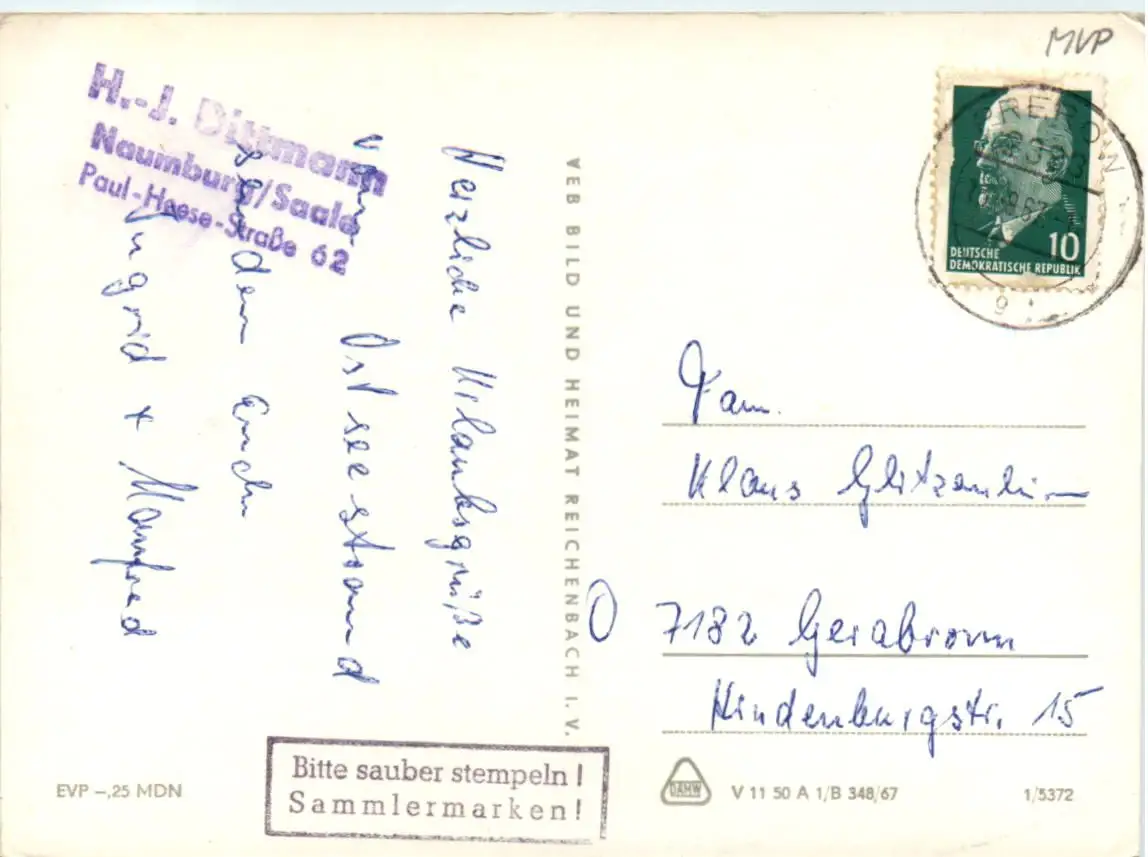 MVP
H.-J. Dittmann
Naumburg/Saale
Paul-Heese-Straße 62
Herzliche Urlaubsgrüße
vom Ostseestrand
senden Euch
Ingrid + Manfred
VEB BILD UND HEIMAT REICHENBACH I. V.
DEUTSCHE
DEMOKRATISCHE REPUBLIK
10
Fam.
Klaus
7182 Gerabronn
Hindenburgstr. 15
Bitte sauber stempeln!
Sammlermarken!
EVP –,25 MDN
DAHW
V 11 50 A 1/B 348/67
1/5372